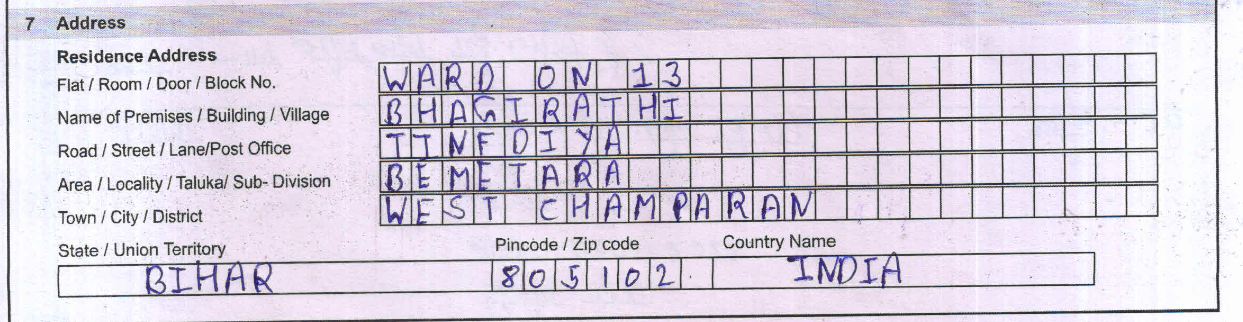 7 Address
Residence Address
Flat / Room / Door / Block No. WARD ON 13
Name of Premises / Building / Village BHAGIRATHI
Road / Street / Lane/Post Office TINFDIYA
Area / Locality / Taluka/ Sub- Division BEMETARA
Town / City / District WEST CHAMPARAN
State / Union Territory Pincode / Zip code Country Name
BIHAR 805102 INDIA